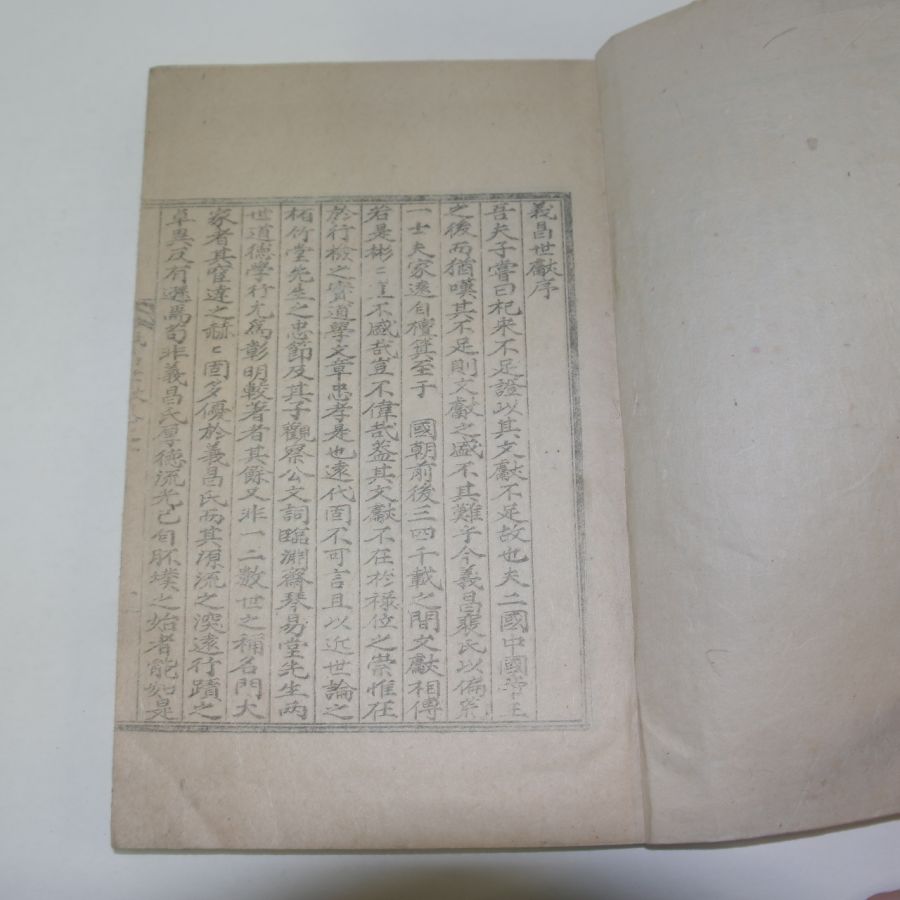 義昌世獻序
吾夫子嘗曰杞宋不足證以其文獻不足故也夫二國中國帝王
之後而猶嘆其不足則文獻之盛不其難乎今義昌裵氏以偏荒
一士夫家遠自檀箕至于 國朝前後三四千載之間文獻相傳
若是彬〻豈不盛哉豈不偉哉盖其文獻不在於祿位之崇惟在
於行檢之實道學文章忠孝是也遠代固不可言且以近世論之
栢竹堂先生之忠節及其子觀察公文詞臨淵齋琴易堂先生兩
世道德學行尤爲彰明較著者其餘又非一二數世之稱名門大
家者其宦達之赫〻固多優於義昌氏而其源流之深遠行蹟之
卓異反有遜焉苟非義昌氏厚德流光已自胚墣之始者能如是